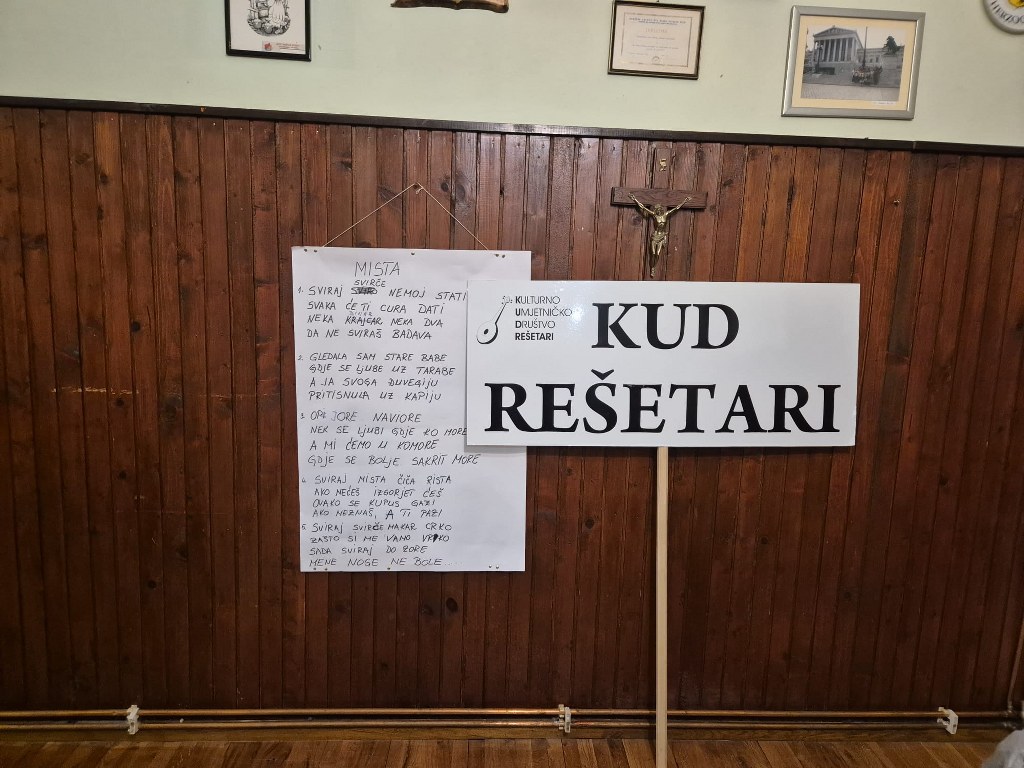 MISTA
SVIRČE
1. SVIRAJ NEMOJ STATI
SVAKA ĆE TI CURA DATI
NEKA KRAJCAR NEKA DVA
DA NE SVIRAŠ BADAVA
2. GLEDALA SAM STARE BABE
GDJE SE LJUBE UZ TARABE
A JA SVOGA DUVEGIJU
PRITISNULA UZ KAPIJU
3. NAVIORE
NEK SE LJUBI GDJE KO MORE
A MI ĆEMO U KOMORE
GDJE SE BOLJE SAKRIT MORE
4. SVIRAJ MISTA ČIČA RISTA
AKO NEĆEŠ IZGORJET ĆEŠ
OVAKO SE KUPUS GAZI
AKO NEZNAŠ, A TI PAZI
5. SVIRAJ SVIRČE MAKAR CRKO
ZAŠTO SI ME VAMO
SADA SVIRAJ DO ZORE
MENE NOGE NE BOLE...
KULTURNO
UMJETNIČKO
DRUŠTVO
REŠETARI
KUD
REŠETARI